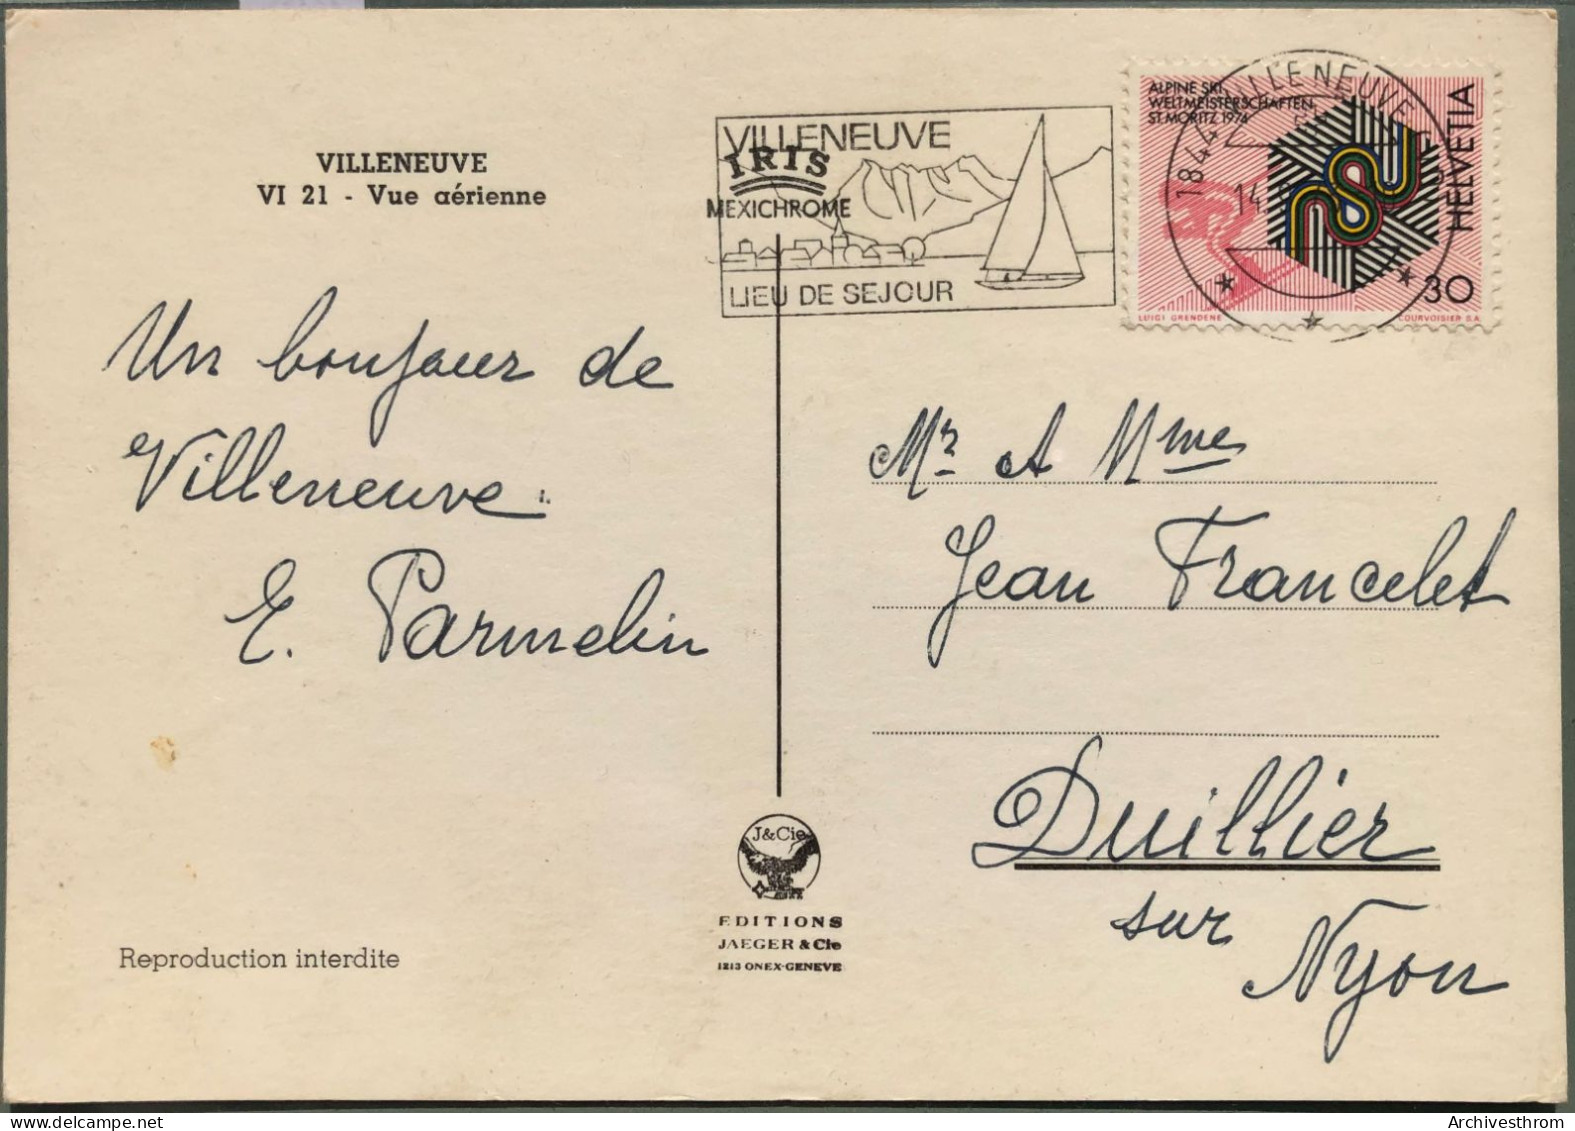 VILLENEUVE
VI 21 - Vue aérienne
Un bonjour de
Villeneuve.
E. Parmelin
Reproduction interdite
VILLENEUVE
IRIS
MEXICHROME
LIEU DE SEJOUR
J&Cie
EDITIONS
JAEGER & Cie
1213 ONEX-GENEVE
ALPINE SKI
WELTMEISTERSCHAFTEN
ST MORITZ 1974
HELVETIA
30
LUIGI GRENDENE COURVOISIER S.A.
1844 VILLENEUVE
14
Mr et Mme
Jean Francelet
Duillier
sur
Nyon
Archivesthrom